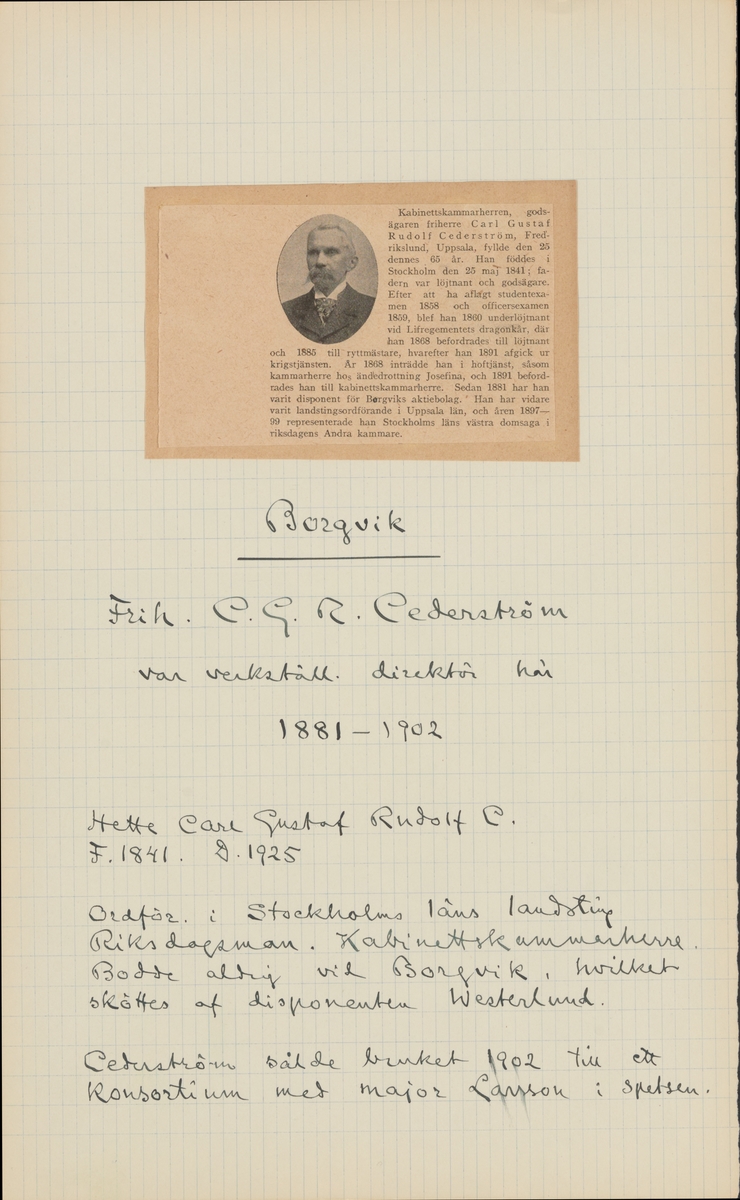 Kabinettskammarherren, gods-
ägaren friherre Carl Gustaf
Rudolf Cederström, Fred-
rikslund, Uppsala, fyllde den 25
dennes 65 år. Han föddes i
Stockholm den 25 maj 1841; fa-
dern var löjtnant och godsägare.
Efter att ha aflagt studentexa-
men 1858 och officersexamen
1859, blef han 1860 underlöjtnant
vid Lifregementets dragonkår, där
han 1868 befordrades till löjtnant
och 1885 till ryttmästare, hvarefter han 1891 afgick ur
krigstjänsten. År 1868 inträdde han i hoftjänst, såsom
kammarherre hos änkedrottning Josefina, och 1891 beford-
rades han till kabinettskammarherre. Sedan 1881 har han
varit disponent för Borgviks aktiebolag. Han har vidare
varit landstingsordförande i Uppsala län, och åren 1897—
99 representerade han Stockholms läns västra domsaga i
riksdagens Andra kammare.
Borgvik
Frih. C. G. R. Cederström
var verkställ. direktör här
1881 – 1902
Hette Carl Gustaf Rudolf C.
F. 1841. D. 1925
Ordför. i Stockholms läns landsting
Riksdagsman. Kabinettskammarherre.
Bodde aldrig vid Borgvik, hvilket
sköttes af disponenten Westerlund.
Cederström sålde bruket 1902 till ett
konsortium med major Larsson i spetsen.